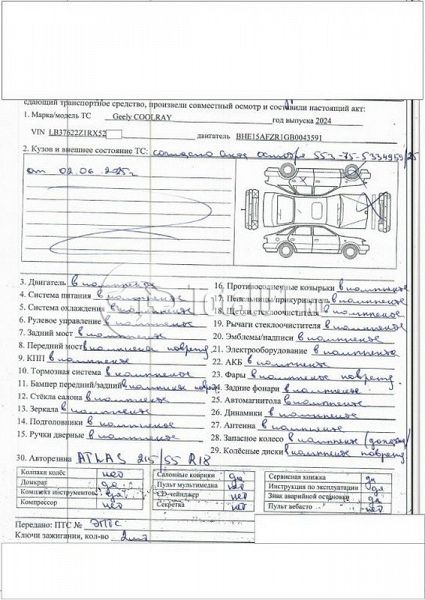 сдающий транспортное средство, произвели совместный осмотр и составили настоящий акт:
1. Марка/модель ТС Geely COOLRAY год выпуска 2024
VIN LB37622Z1RX52 двигатель BHE15AFZR1GB0043591
2. Кузов и внешнее состояние ТС: согласно акта осмотра 553-75-5334959/25
от 02.06.2025г.
3. Двигатель в наличие
4. Система питания в наличие
5. Система охлаждения в наличие
6. Рулевое управление в наличие
7. Задний мост в наличие
8. Передний мост в наличие поврежд
9. КПП в наличие
10. Тормозная система в наличие
11. Бампер передний/задний в наличие повреж
12. Стёкла салона в наличие
13. Зеркала в наличие
14. Подголовники в наличие
15. Ручки дверные в наличие
16. Противосолнечные козырьки в наличие
17. Пепельницы/прикуриватель в наличие
18. Щетки стеклоочистителя в наличие
19. Рычаги стеклоочистителя в наличие
20. Эмблемы/надписи в наличие
21. Электрооборудование в наличие
22. АКБ в наличие
23. Фары в наличие поврежд
24. Задние фонари в наличие
25. Автомагнитола в наличие
26. Динамики в наличие
27. Антенна в наличие
28. Запасное колесо в наличие (докатка)
29. Колёсные диски в наличие поврежд
30. Авторезина ATLAS 215/55 R18
Колпаки колёс нет Салонные коврики да Сервисная книжка да
Домкрат да Пульт мультимедиа нет Инструкция по эксплуатации да
Комплект инструментов да CD-чейнджер нет Знак аварийной остановки да
Компрессор нет Секретка нет Пульт вебасто нет
Передано: ПТС № ЭПТС
Ключи зажигания, кол-во 2шт